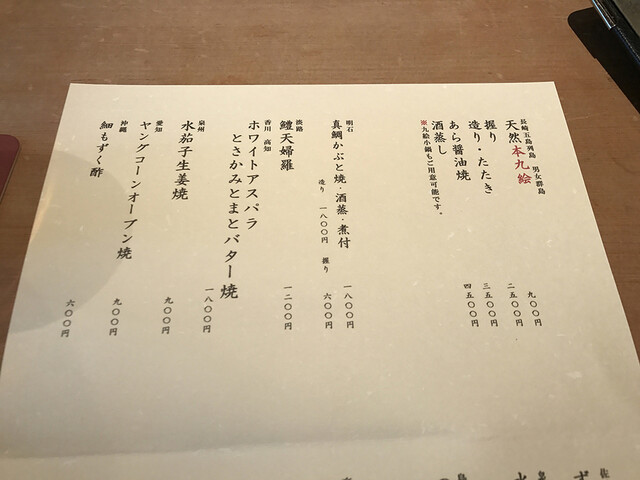 長崎五島列島 男女群島
天然本九絵
握り 九〇〇円
造り・たたき 二五〇〇円
あら醤油焼 三五〇〇円
酒蒸し 四五〇〇円
※九絵小鍋もご用意可能です。
明石
真鯛かぶと焼・酒蒸・煮付 一八〇〇円
造り 一八〇〇円 握り 六〇〇円
淡路
鱧天婦羅 一二〇〇円
香川 高知
ホワイトアスパラ
とさかみとまとバター焼 一八〇〇円
泉州
水茄子生姜焼 九〇〇円
愛知
ヤングコーンオーブン焼 九〇〇円
沖縄
細もずく酢 六〇〇円